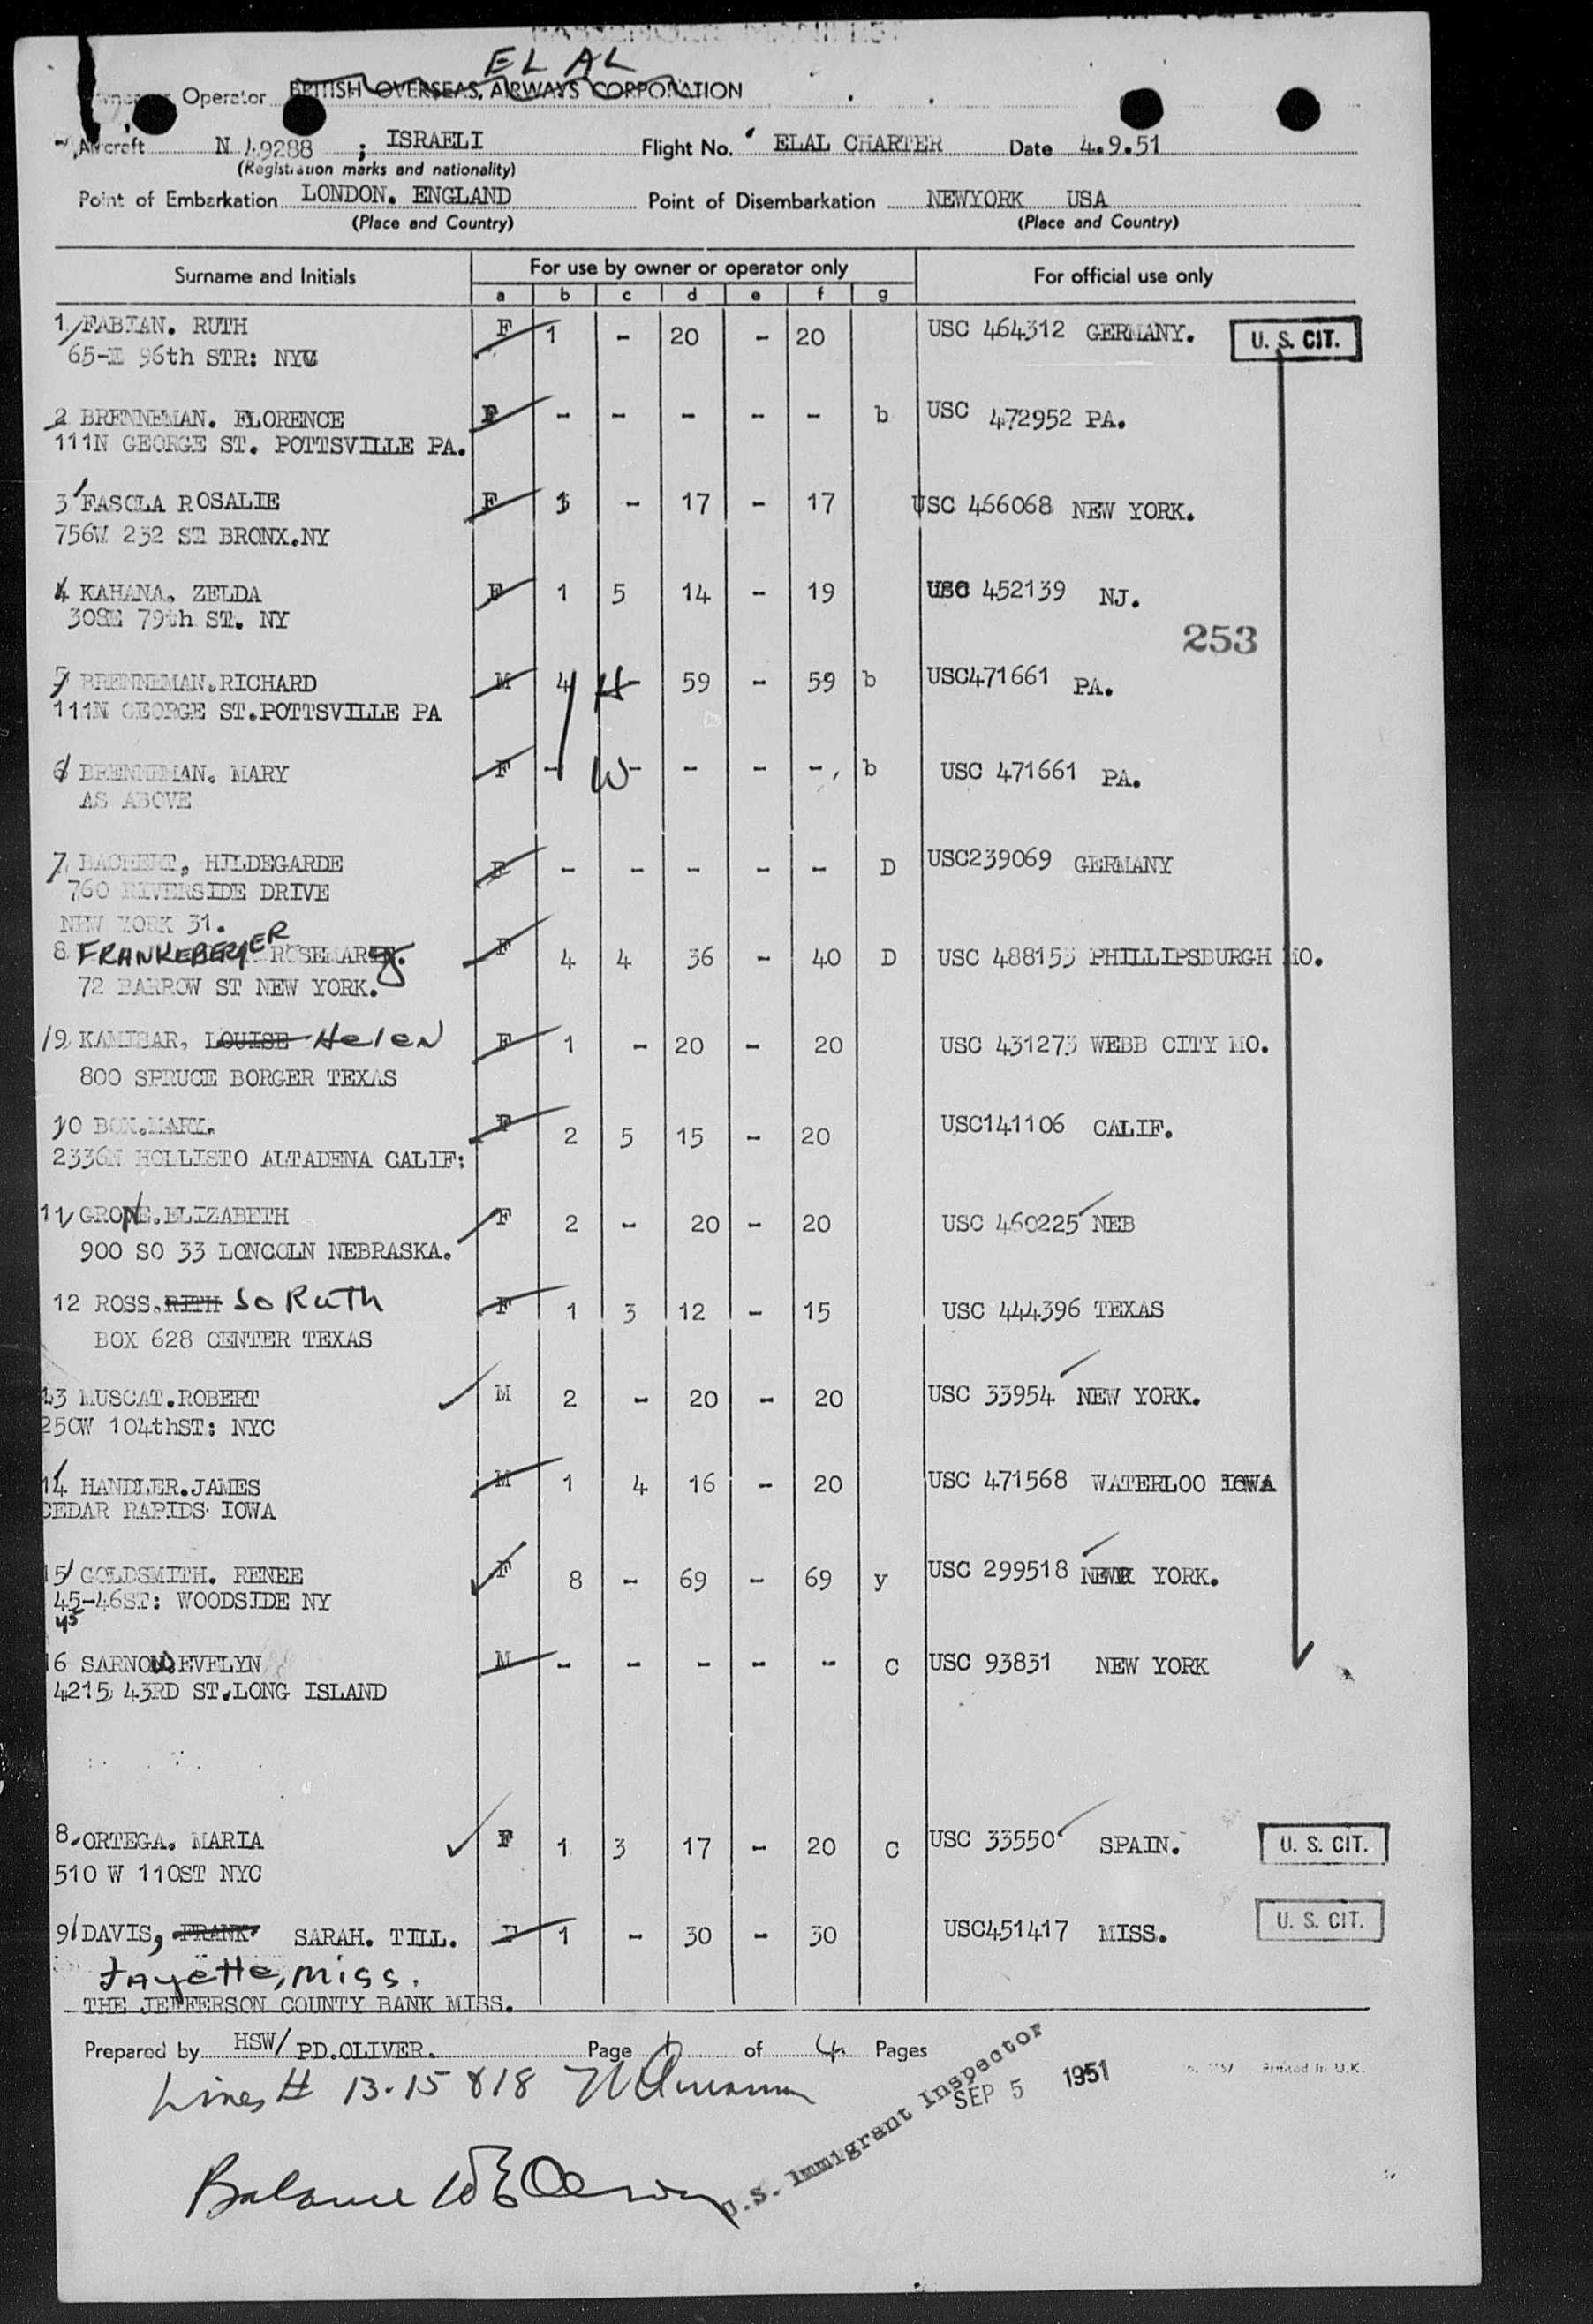 EL AL
Operator BRITISH OVERSEAS. AIRWAYS CORPORATION
Aircraft N 49288 ; ISRAELI Flight No. ELAL CHARTER Date 4.9.51
(Registration marks and nationality)
Point of Embarkation LONDON. ENGLAND Point of Disembarkation NEWYORK USA
(Place and Country) (Place and Country)
Surname and Initials For use by owner or operator only For official use only
a b c d e f g
1 FABIAN. RUTH F 1 - 20 - 20 USC 464312 GERMANY. U. S. CIT.
65-E 96th STR: NYC
2 BRENNEMAN. FLORENCE F - - - - - b USC 472952 PA.
111N GEORGE ST. POTTSVILLE PA.
3 FASOLA ROSALIE F 1 - 17 - 17 USC 466068 NEW YORK.
756W 232 ST BRONX.NY
4 KAHANA. ZELDA F 1 5 14 - 19 USC 452139 NJ.
308E 79th ST. NY
253
5 BRENNEMAN.RICHARD M 4 H 59 - 59 b USC471661 PA.
111N GEORGE ST.POTTSVILLE PA
6 BRENNEMAN. MARY F - W - - - - b USC 471661 PA.
AS ABOVE
7 BACHERT, HILDEGARDE F - - - - - D USC239069 GERMANY
760 RIVERSIDE DRIVE
NEW YORK 31.
8 FRANKEBERGER ROSEMARY. F 4 4 36 - 40 D USC 488153 PHILLIPSBURGH MO.
72 BARROW ST NEW YORK.
9 KAMISAR, LOUISE Helen F 1 - 20 - 20 USC 431273 WEBB CITY MO.
800 SPRUCE BORGER TEXAS
10 BOX.MARY. F 2 5 15 - 20 USC141106 CALIF.
2336N HOLLISTO ALTADENA CALIF:
11 GRONE.ELIZABETH F 2 - 20 - 20 USC 460225 NEB
900 SO 33 LONCOLN NEBRASKA.
12 ROSS.RITH Jo Ruth F 1 3 12 - 15 USC 444396 TEXAS
BOX 628 CENTER TEXAS
13 MUSCAT.ROBERT M 2 - 20 - 20 USC 33954 NEW YORK.
250W 104thST: NYC
14 HANDLER.JAMES M 1 4 16 - 20 USC 471568 WATERLOO IOWA
CEDAR RAPIDS IOWA
15 GOLDSMITH. RENEE F 8 - 69 - 69 y USC 299518 NEW YORK.
45-46ST: WOODSIDE NY
45
16 SARNOW.EVELYN M - - - - - C USC 93831 NEW YORK
4215 43RD ST.LONG ISLAND
8 ORTEGA. MARIA F 1 3 17 - 20 C USC 33550 SPAIN. U. S. CIT.
510 W 110ST NYC
9 DAVIS, FRANK SARAH. TILL. F 1 - 30 - 30 USC451417 MISS. U. S. CIT.
Fayette, Miss.
THE JEFFERSON COUNTY BANK MISS.
Prepared by HSW/ PD.OLIVER. Page 1 of 4 Pages
Printed in U.K.
Lines # 13-15 & 18
U.S. Immigrant Inspector
SEP 5 1951
Balance